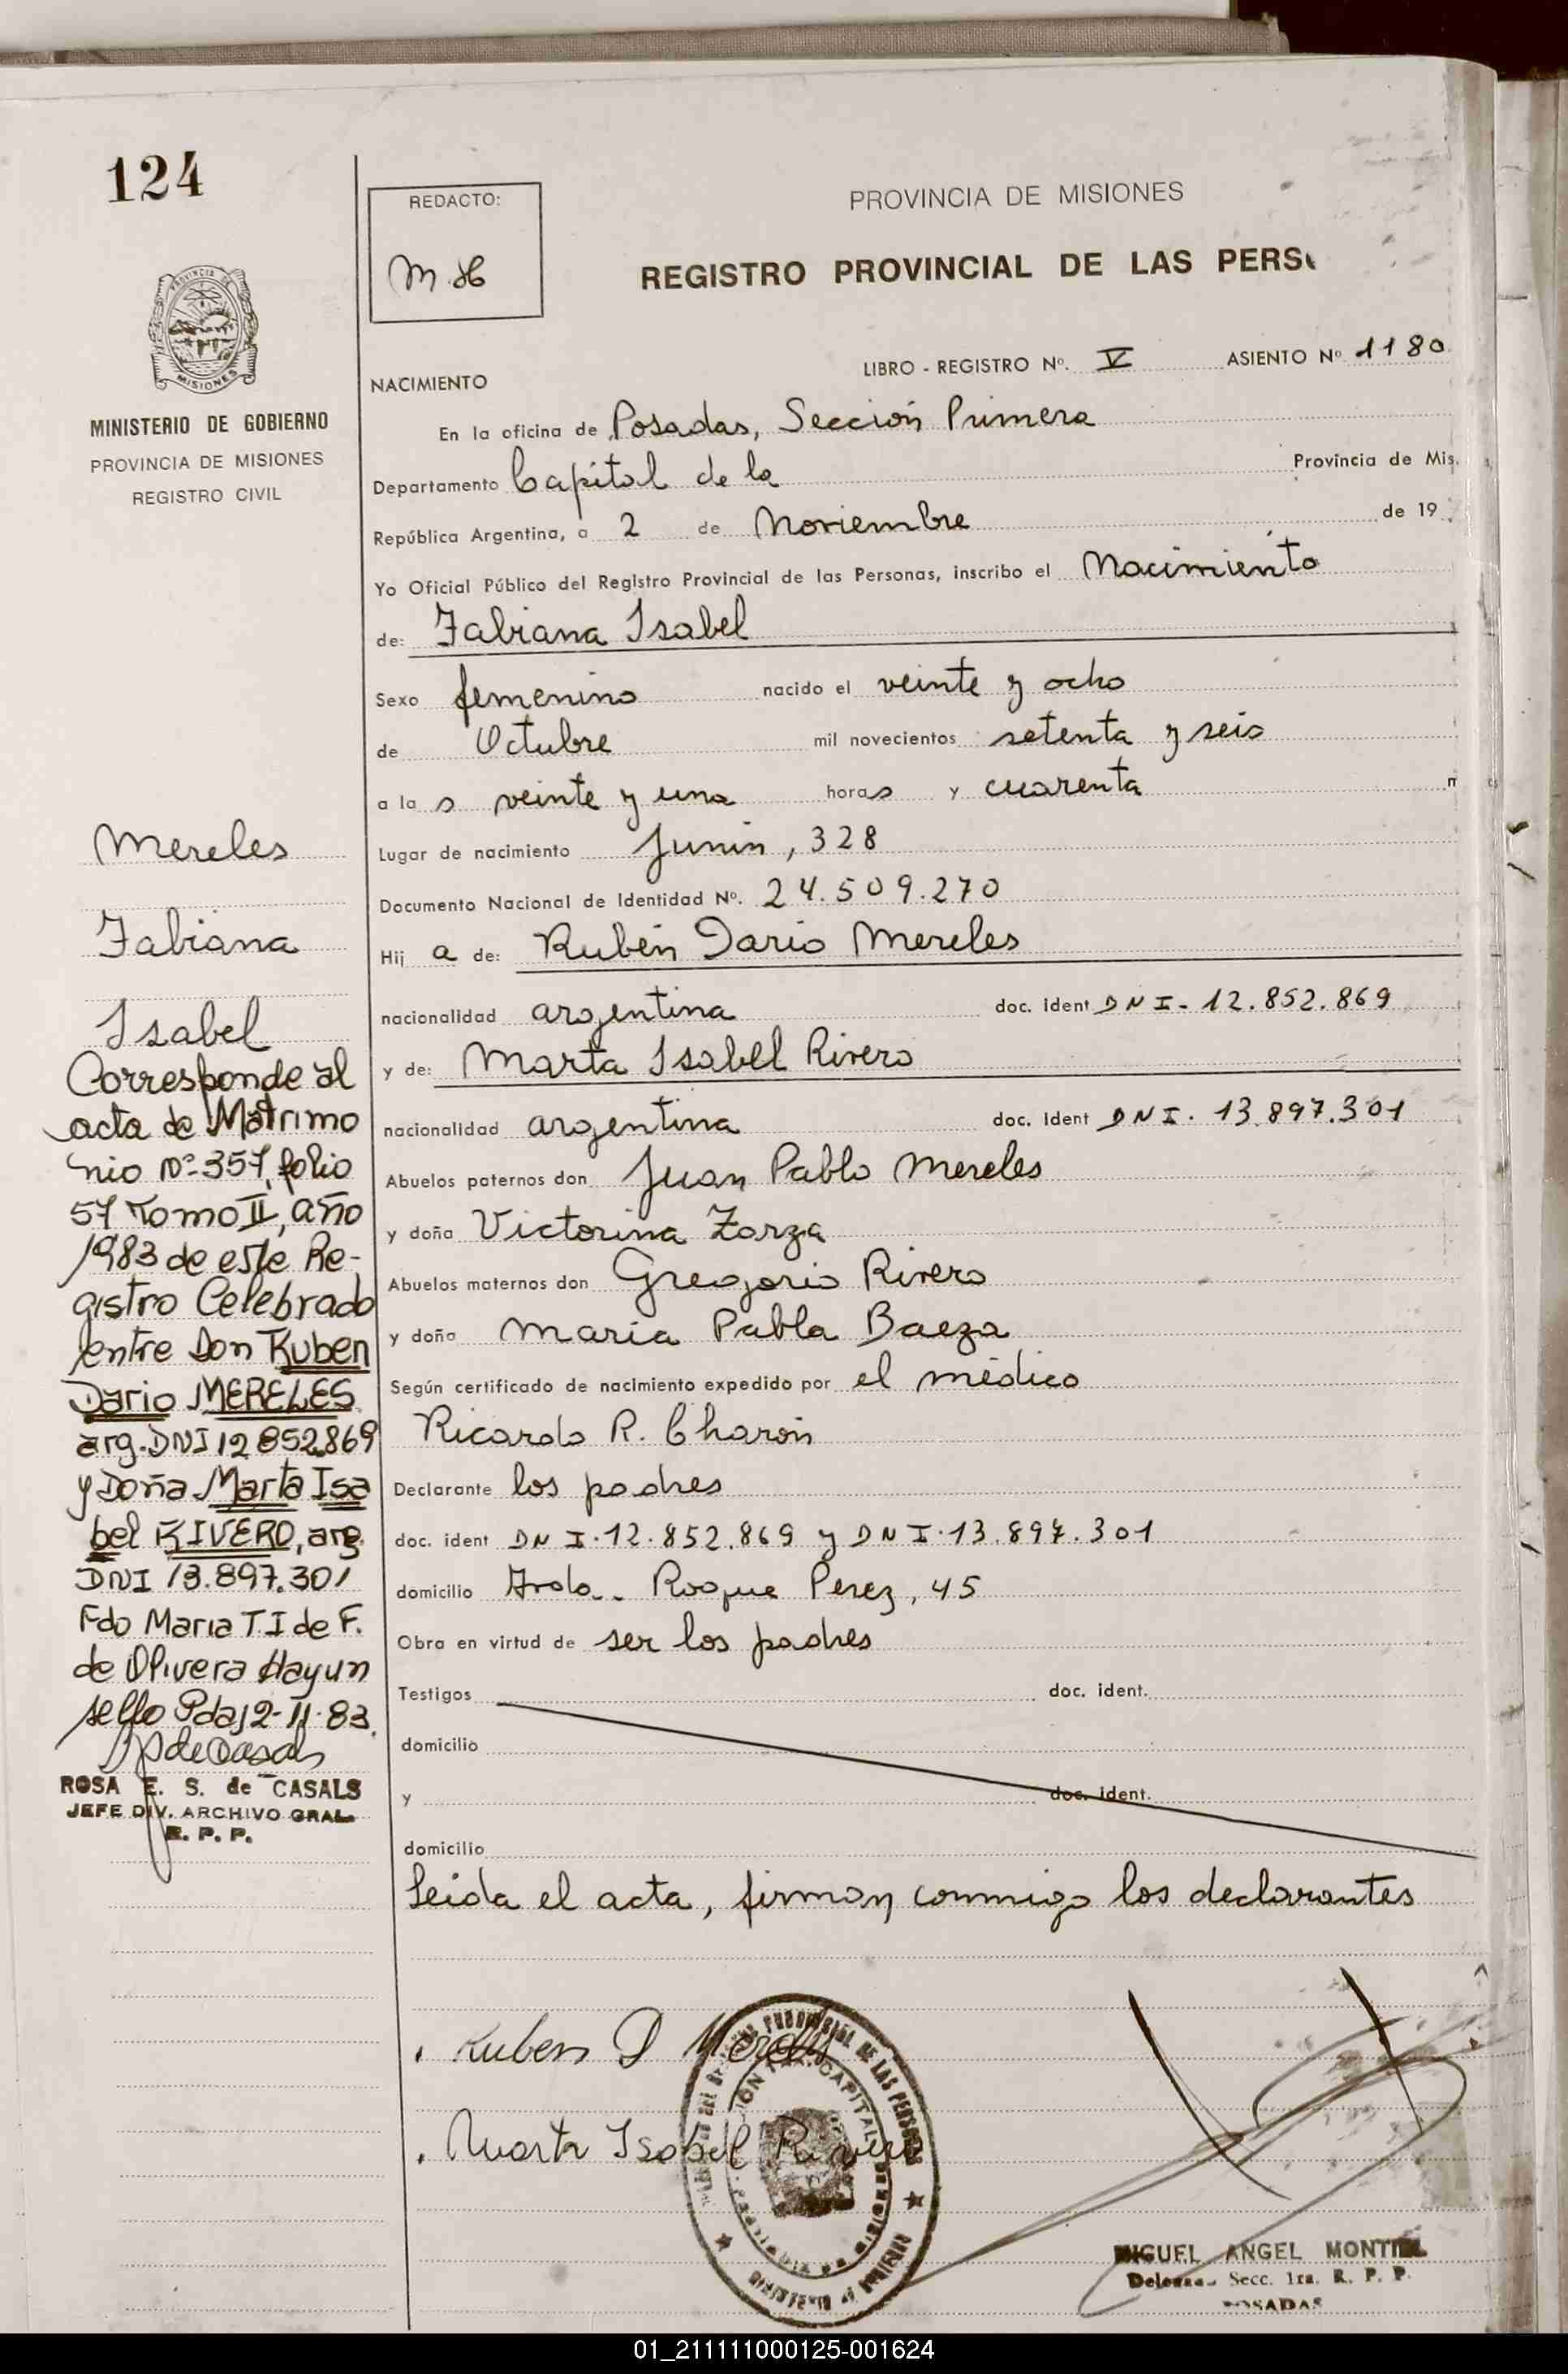 124
REDACTO:
M.H
PROVINCIA DE MISIONES
REGISTRO PROVINCIAL DE LAS PERS
PROVINCIA DE
MISIONES
MINISTERIO DE GOBIERNO
PROVINCIA DE MISIONES
REGISTRO CIVIL
LIBRO - REGISTRO Nº. V ASIENTO Nº 1180
NACIMIENTO
En la oficina de Posadas, Sección Primera
Departamento Capital de la Provincia de Mis.
República Argentina, a 2 de Noviembre de 19
Yo Oficial Público del Registro Provincial de las Personas, inscribo el Nacimiento
de: Fabiana Isabel
Sexo femenino nacido el veinte y ocho
de Octubre mil novecientos setenta y seis
a la s veinte y una horas y cuarenta m
Lugar de nacimiento Junín, 328
Documento Nacional de Identidad Nº. 24.509.270
Hij a de: Rubén Dario Mereles
nacionalidad argentina doc. ident DNI- 12.852.869
y de: Marta Isabel Rivero
nacionalidad argentina doc. ident DNI. 13.897.301
Abuelos paternos don Juan Pablo Mereles
y doña Victorina Zarza
Abuelos maternos don Gregorio Rivero
y doña María Pabla Baeza
Según certificado de nacimiento expedido por el médico
Ricardo R. Charón
Declarante los padres
doc. ident DNI.12.852.869 y DNI.13.897.301
domicilio Avda. Roque Perez, 45
Obra en virtud de ser los padres
Testigos doc. ident.
domicilio
y doc. ident.
domicilio
Leída el acta, firman conmigo los declarantes
Mereles
Fabiana
Isabel
Corresponde al
acta de Matrimo
nio Nº 357, folio
57 Tomo II, año
1983 de este Re-
gistro Celebrado
entre Don Ruben
Dario MERELES
arg. DNI 12852869
y Doña Marta Isa
bel RIVERO, arg.
DNI 13.897.301
Fdo Maria T.I de F.
de Olivera Hayun
sello Pdas 2-11-83.
ROSA E. S. de CASALS
JEFE DIV. ARCHIVO GRAL.
R. P. P.
Ruben D Mereles
Marta Isabel Rivero
PROVINCIAL DE LAS PERSONAS
CAPITAL
MINISTERIO DE GOBIERNO
MIGUEL ANGEL MONTIEL
Delegado Secc. 1ra. R. P. P.
POSADAS
01_211111000125-001624